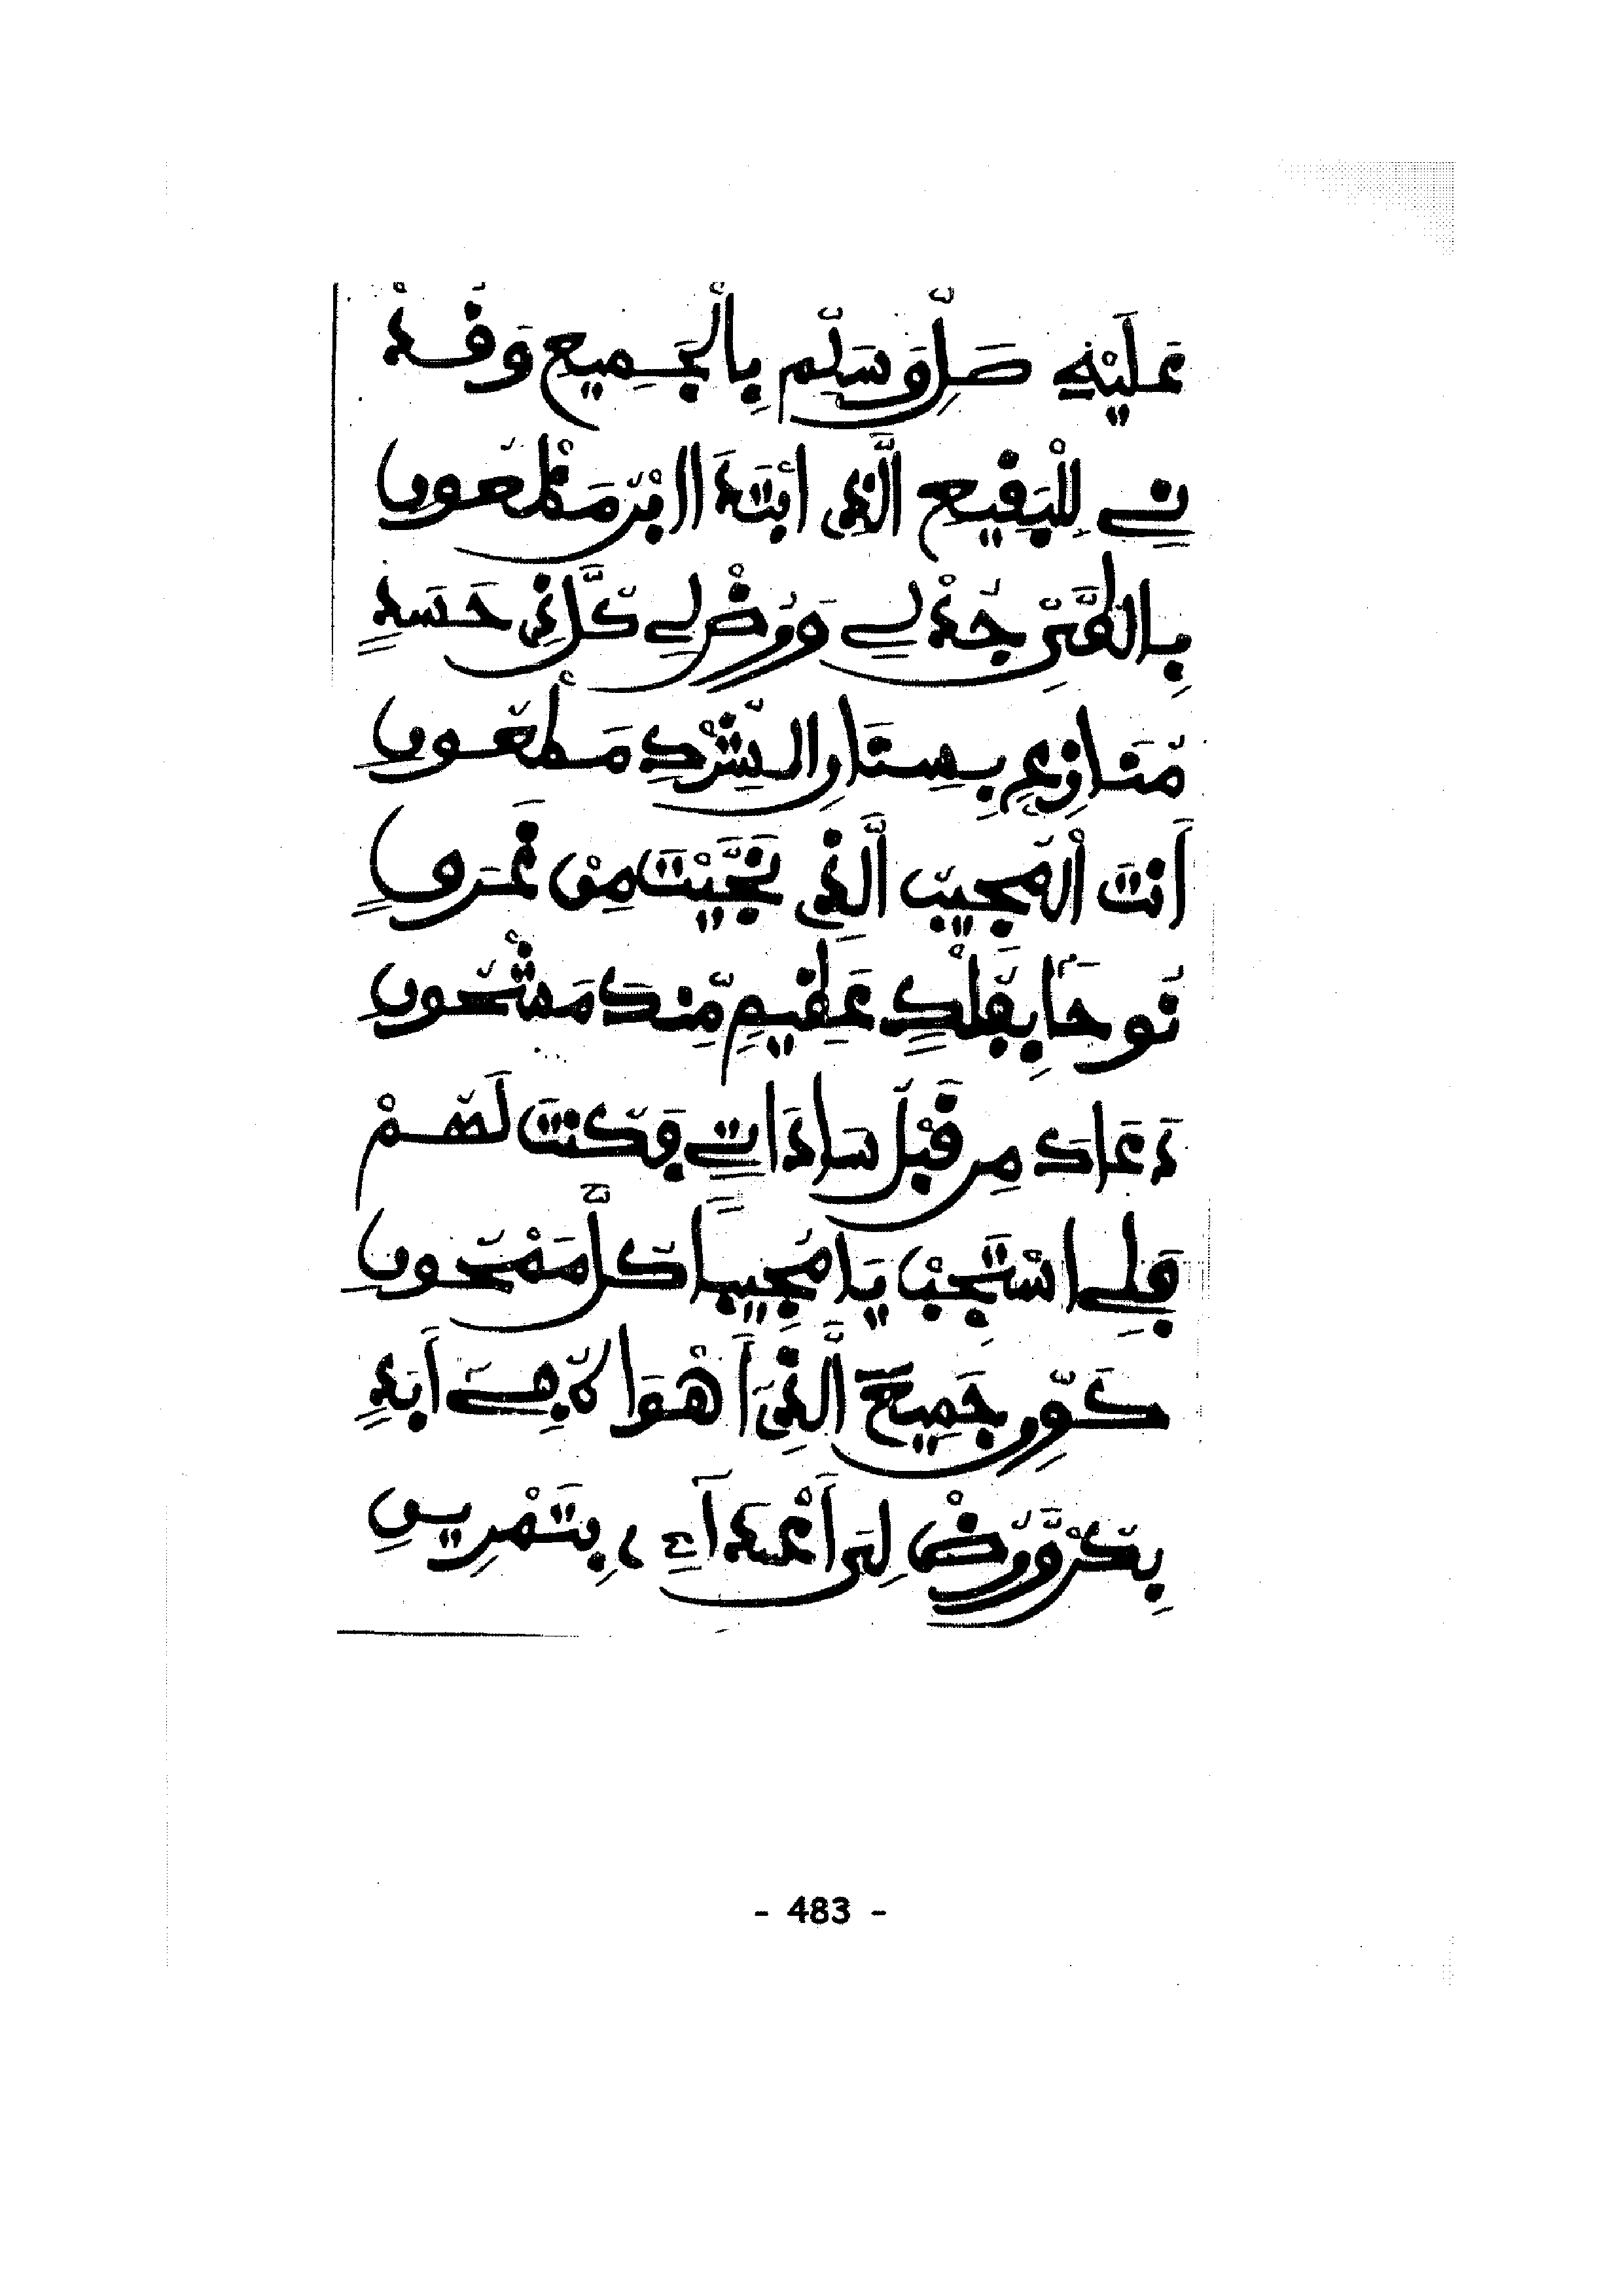 عَلَيْهِ صَلِّ وَسَلِّم بِالْجَمِيعِ وَقُدْ
نِي لِلْبَقِيعِ الَّذِي
بِالْقَبْرِ جُدْ لِي وَرُضْ لِي كُلَّ ذِي حَسَدٍ
مُنَازِعٍ بِسِتَارِ الشَّرْكِ مَطْعُونِ
أَنْتَ الْمُجِيبُ الَّذِي نَجَّيْتَ مِنْ غَرَقٍ
نُوحًا بِفُلْكٍ عَظِيمٍ مِّنْكَ مَشْحُونِ
دَعَاكَ مِن قَبْلُ سَادَاتٌ فَكُنْتَ لَهُمْ
فَلِي اسْتَجِبْ يَا مُجِيبًا كُلَّ مَمْحُونِ
كَوِّن جَمِيعَ الَّذِي أَهْوَاهُ فِي أَبَدٍ
بِكُنْ وَرُضْ لِيَ أَعْدَآءِ بِتَمْرِينِ
- 483 -